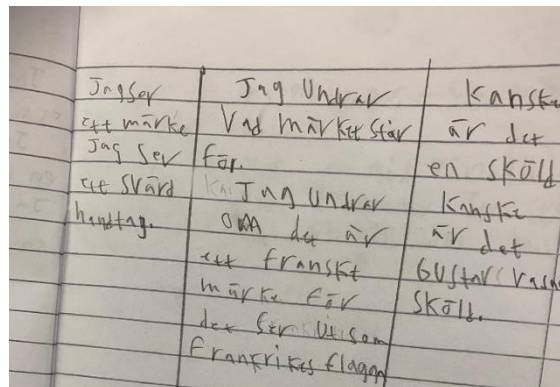 Jag ser
ett märke
Jag ser
ett svärd
handtag.
Jag undrar
Vad märket står
för.
Jag undrar
om det är
ett franskt
märke för
det ser ut som
frankrikes flagga
Kanske
är det
en sköld
Kanske
är det
Gustav vasas
sköld.